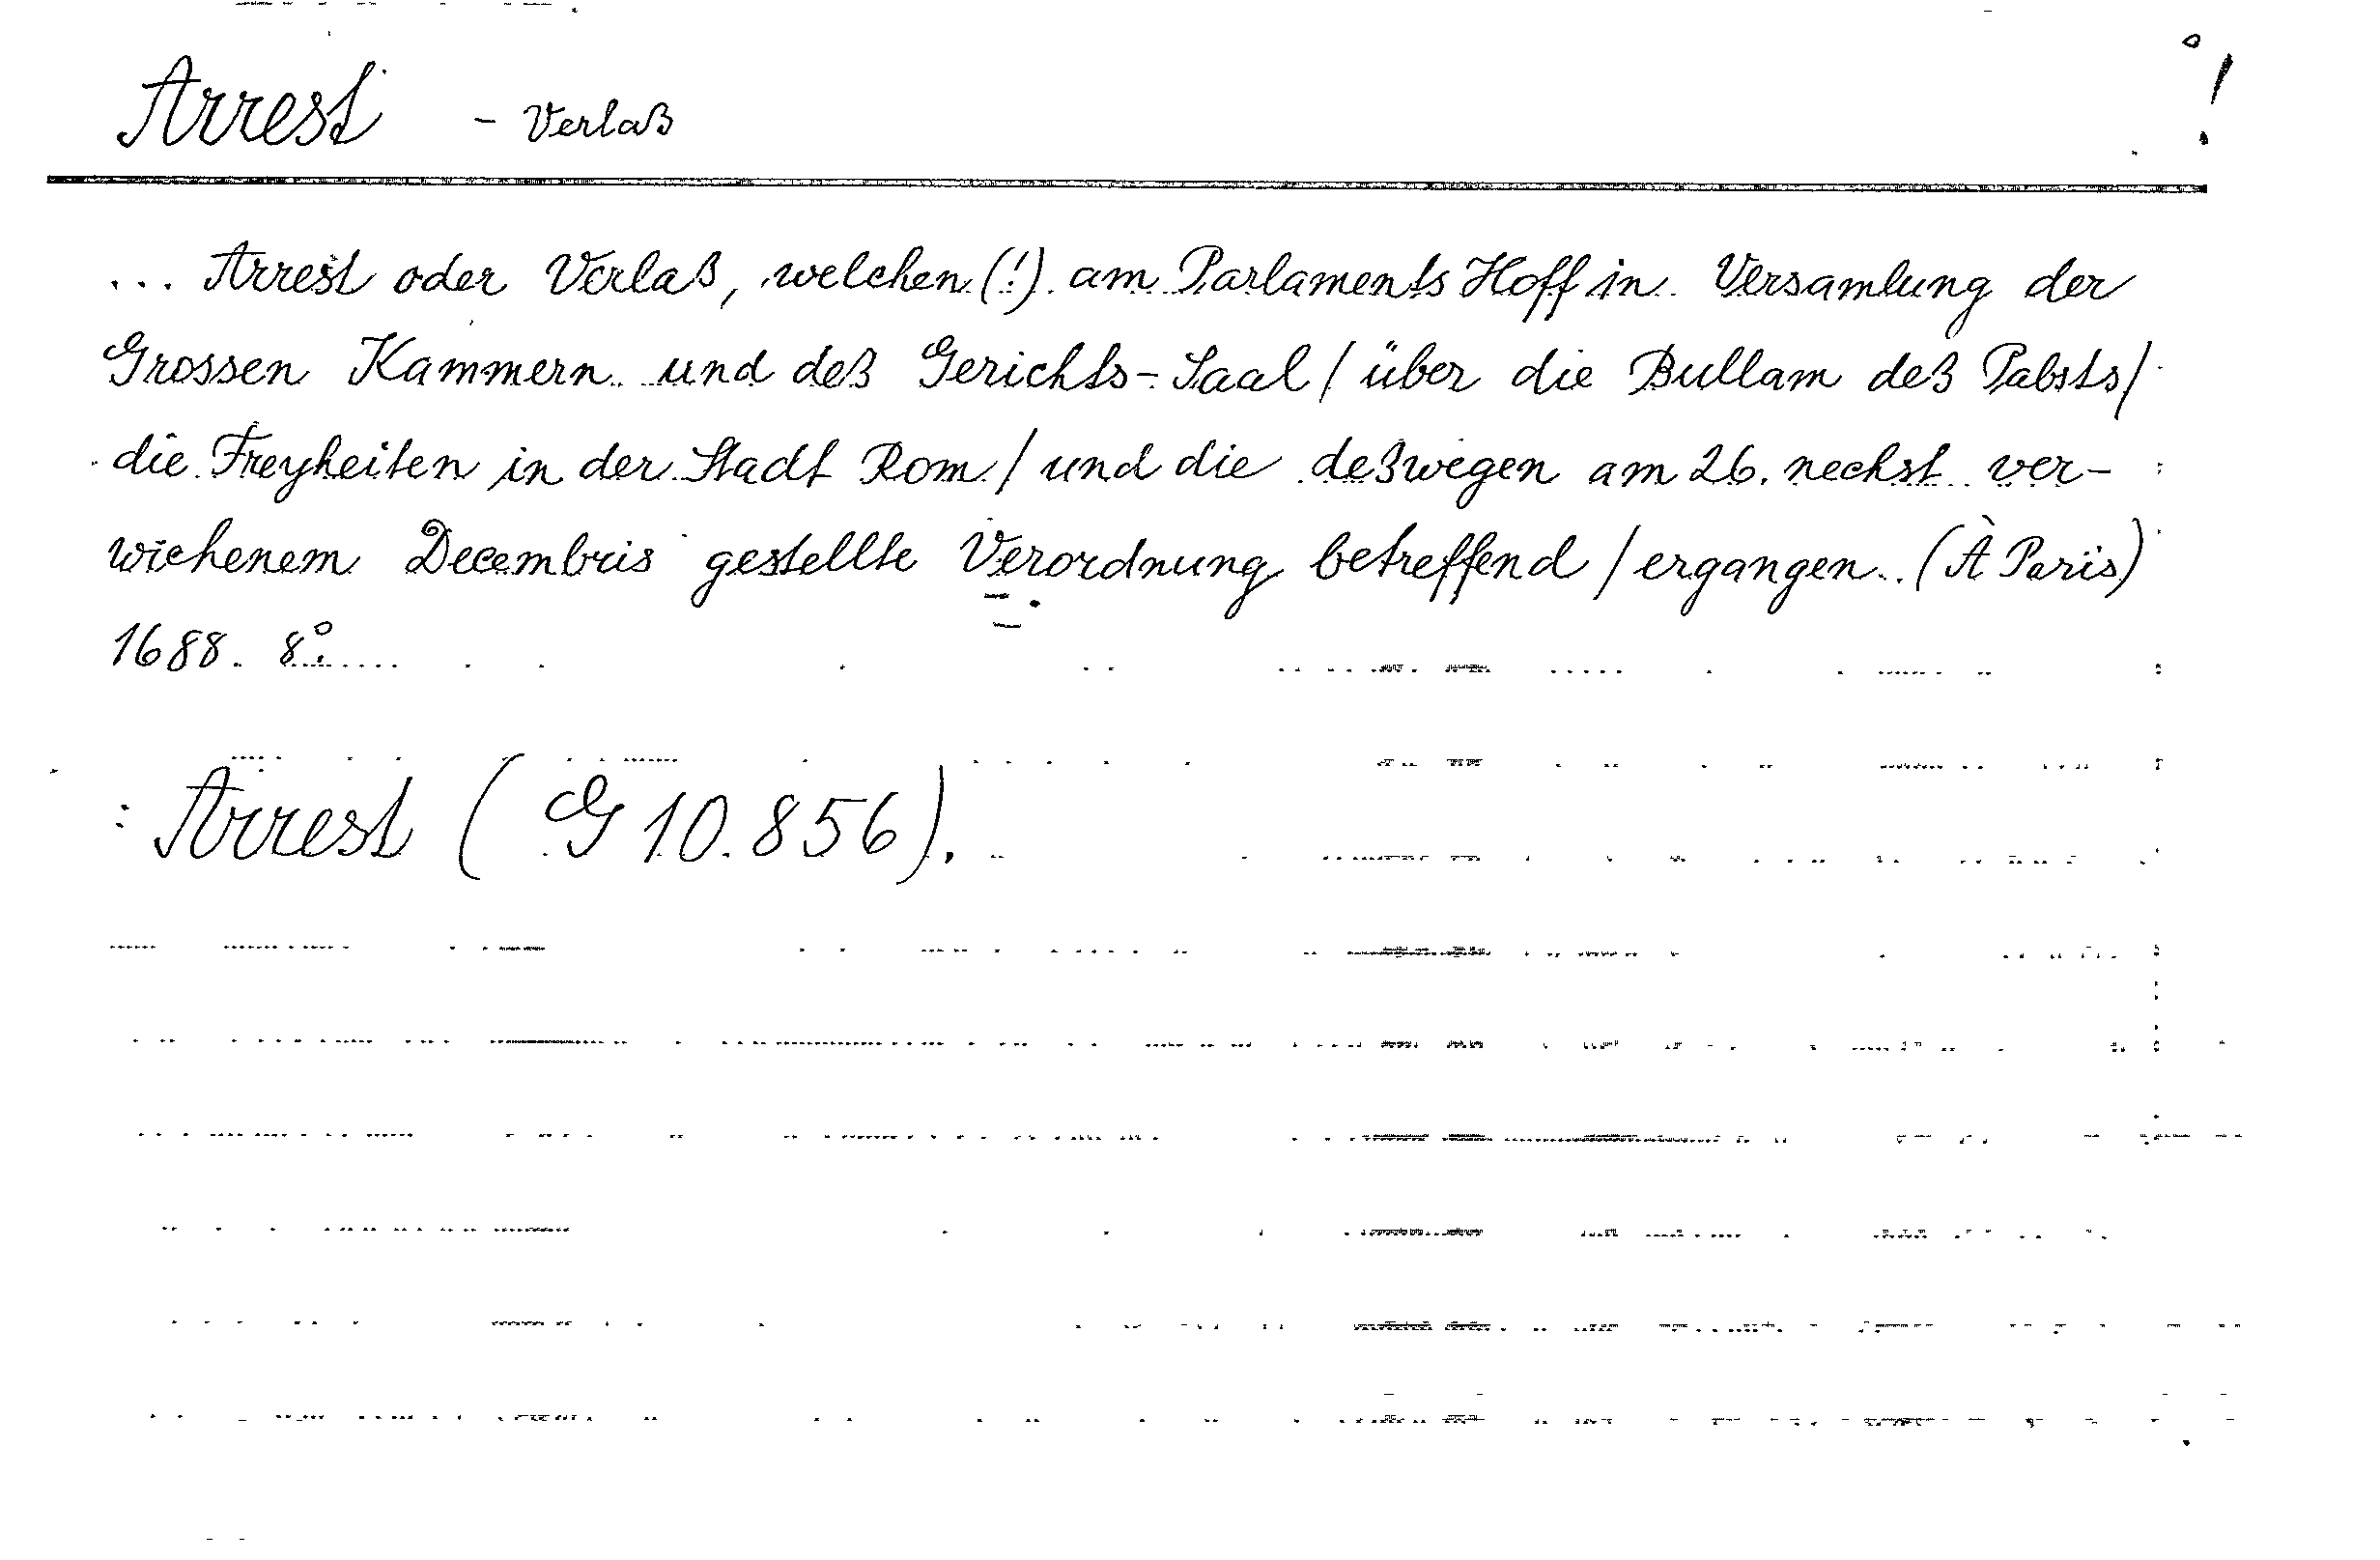 Arrest - Verlaß !
... Arrest oder Verlaß, welchen (!) am Parlaments Hoff in Versamlung der
Grossen Kammern und deß Gerichts-Saal / über die Bullam deß Pabsts /
die Freyheiten in der Stadt Rom / und die deßwegen am 26. nechst ver-
wichenem Decembris gestellte Verordnung betreffend / ergangen. (À Paris)
1688. 8°.
: Arrest (G 10.856).